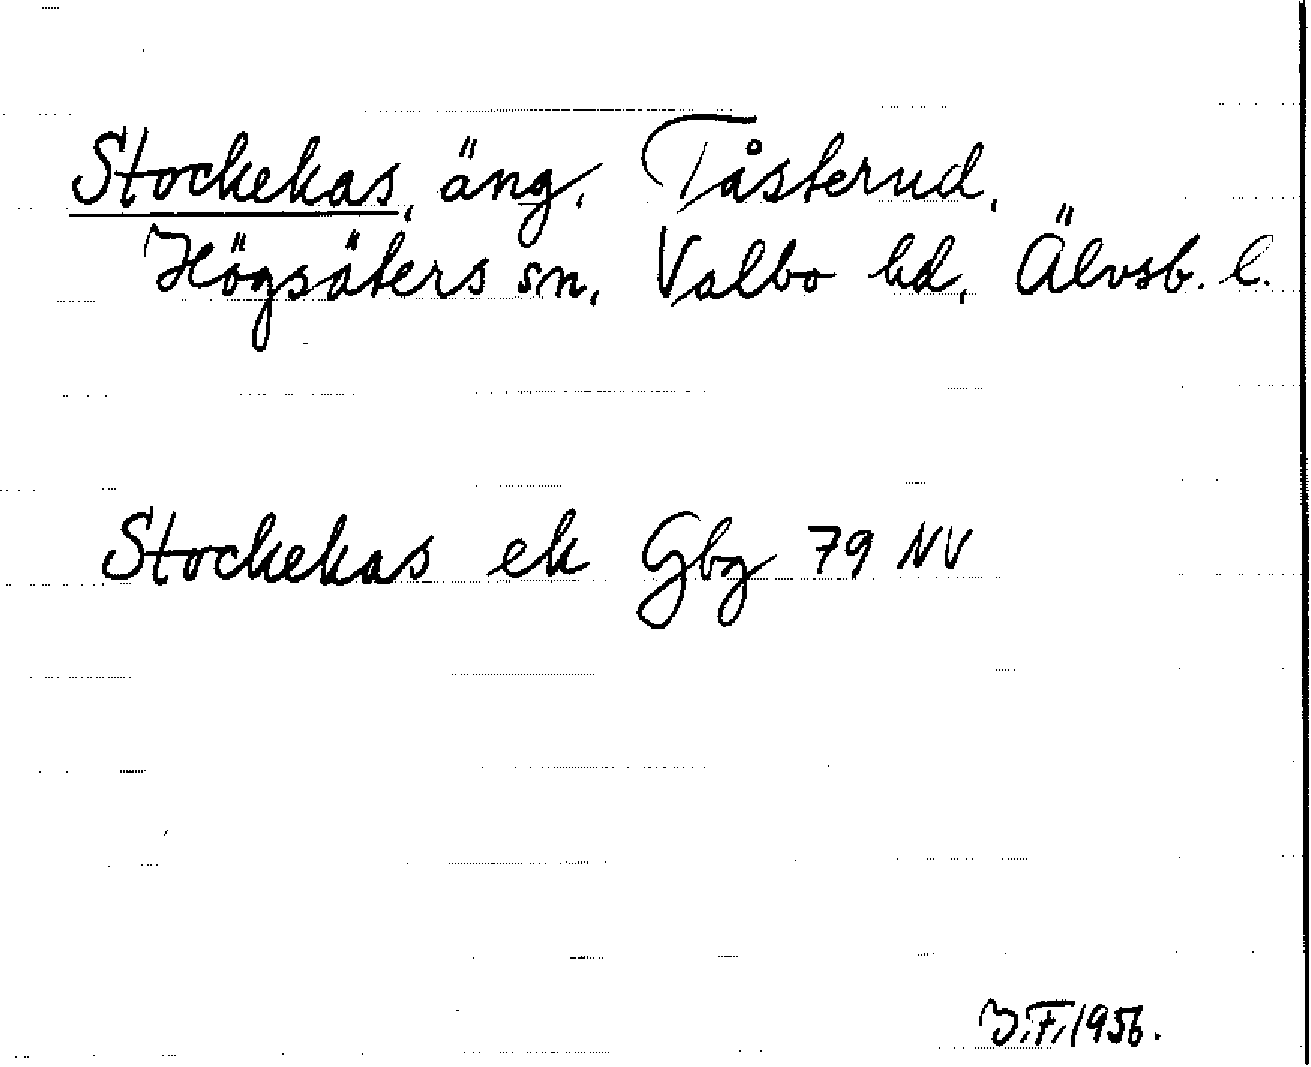 Stockekas, äng, Tåsterud,
Högsäters sn, Valbo hd, Älvsb. l.
Stockekas ek Gbg 79 NV
I.F. 1956.